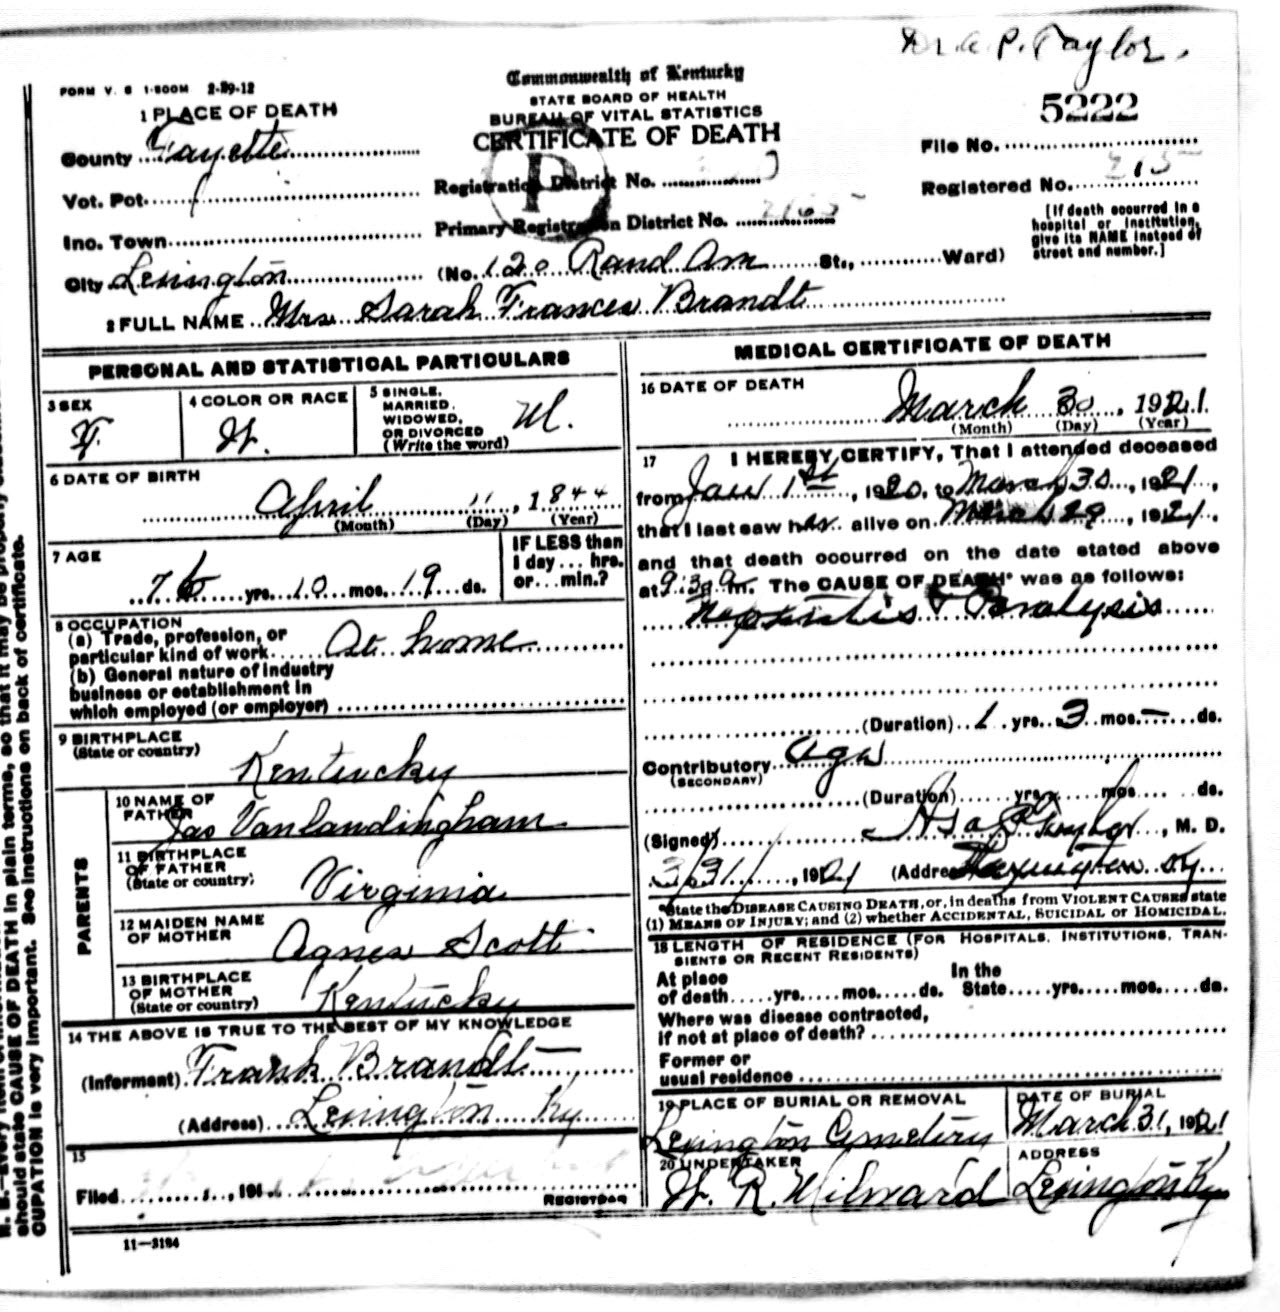 Dr. A. P. Taylor.
FORM V. S 1-500M 2-29-12
Commonwealth of Kentucky
STATE BOARD OF HEALTH
BUREAU OF VITAL STATISTICS
CERTIFICATE OF DEATH
5222
1 PLACE OF DEATH
County Fayette
Vot. Pot.
Inc. Town
City Lexington (No. 120 Rand Ave St., Ward)
Registration District No.
Primary Registration District No. 2165
P
File No.
Registered No. 215
[If death occurred in a
hospital or institution,
give its NAME instead of
street and number.]
2 FULL NAME Mrs Sarah Frances Brandt
PERSONAL AND STATISTICAL PARTICULARS
3 SEX
F.
4 COLOR OR RACE
W.
5 SINGLE,
MARRIED,
WIDOWED,
OR DIVORCED
(Write the word)
M.
6 DATE OF BIRTH
April 11, 1844
(Month) (Day) (Year)
7 AGE
76 yrs. 10 mos. 19 ds.
IF LESS than
1 day... hrs.
or... min.?
8 OCCUPATION
(a) Trade, profession, or
particular kind of work At home
(b) General nature of industry
business or establishment in
which employed (or employer)
9 BIRTHPLACE
(State or country)
Kentucky
PARENTS
10 NAME OF
FATHER
Jas Vanlandingham
11 BIRTHPLACE
OF FATHER
(State or country)
Virginia
12 MAIDEN NAME
OF MOTHER
Agnes Scott
13 BIRTHPLACE
OF MOTHER
(State or country)
Kentucky
14 THE ABOVE IS TRUE TO THE BEST OF MY KNOWLEDGE
(Informant) Frank Brandt
(Address) Lexington Ky
15
Filed , 191
REGISTRAR
11—3184
MEDICAL CERTIFICATE OF DEATH
16 DATE OF DEATH
March 30, 1921
(Month) (Day) (Year)
17 I HEREBY CERTIFY, That I attended deceased
from Jan 1st, 1920, to March 30, 1921,
that I last saw her alive on March 29, 1921,
and that death occurred on the date stated above
at 9:30 a m. The CAUSE OF DEATH* was as follows:
Nephritis & Paralysis
(Duration) 1 yrs. 3 mos. — ds.
Contributory Age
(SECONDARY)
(Duration) yrs. mos. ds.
(Signed) Taylor, M. D.
3/31, 1921 (Address) Lexington Ky
*State the DISEASE CAUSING DEATH, or, in deaths from VIOLENT CAUSES state
(1) MEANS OF INJURY; and (2) whether ACCIDENTAL, SUICIDAL OR HOMICIDAL.
18 LENGTH OF RESIDENCE (FOR HOSPITALS, INSTITUTIONS, TRAN-
SIENTS OR RECENT RESIDENTS)
At place In the
of death yrs. mos. ds. State yrs. mos. ds.
Where was disease contracted,
if not at place of death?
Former or
usual residence
19 PLACE OF BURIAL OR REMOVAL
Lexington Cemetery
DATE OF BURIAL
March 31, 1921
20 UNDERTAKER
W. R. Milward
ADDRESS
Lexington Ky
should state CAUSE OF DEATH in plain terms, so that it may be properly
CUPATION is very important. See instructions on back of certificate.